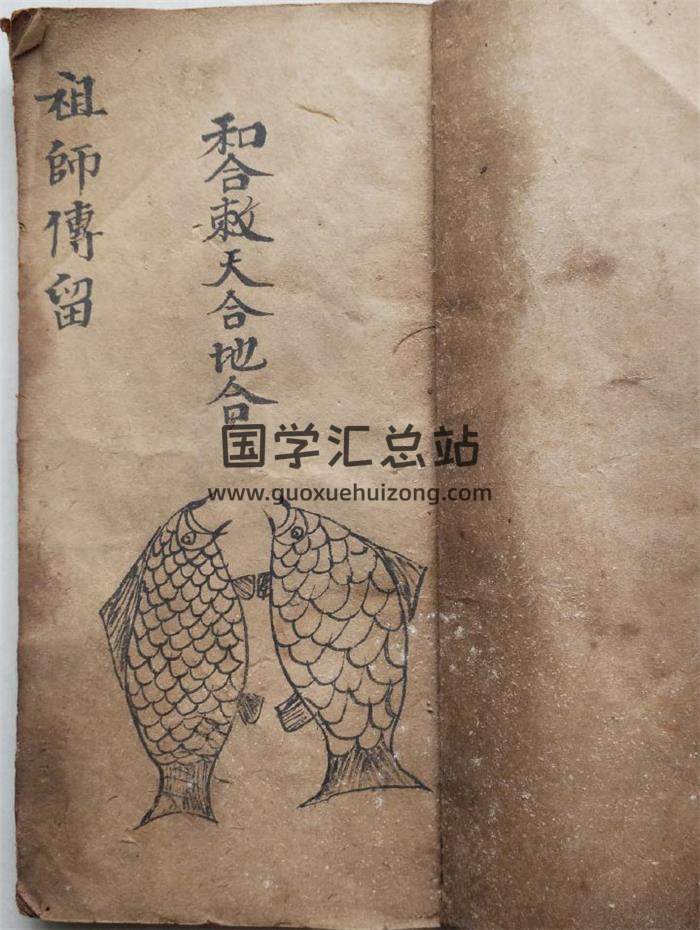 和合敕天合地合
祖師傳留
国学汇总站
www.guoxuehuizong.com